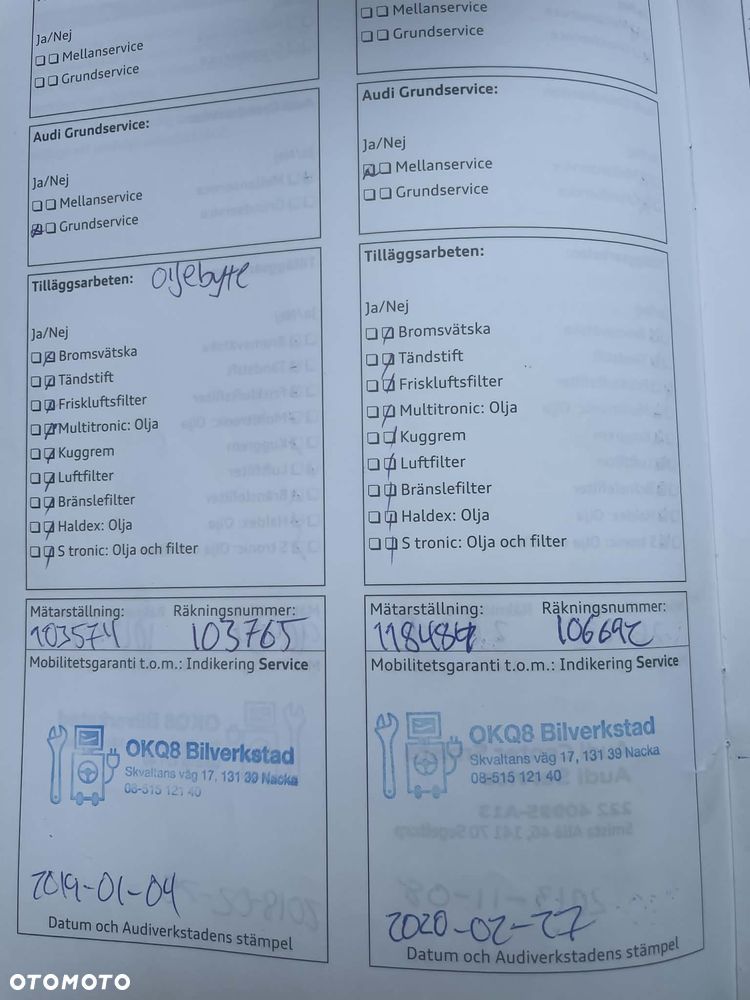 Ja/Nej
Mellanservice
Grundservice
Audi Grundservice:
Ja/Nej
Mellanservice
Grundservice
Tilläggsarbeten: Oljebyte
Ja/Nej
Bromsvätska
Tändstift
Friskluftsfilter
Multitronic: Olja
Kuggrem
Luftfilter
Bränslefilter
Haldex: Olja
S tronic: Olja och filter
Mätarställning: Räkningsnummer:
103574 103765
Mobilitetsgaranti t.o.m.: Indikering Service
OKQ8 Bilverkstad
Skvaltans väg 17, 131 39 Nacka
08-515 121 40
2019-01-04
Datum och Audiverkstadens stämpel
Mellanservice
Grundservice
Audi Grundservice:
Ja/Nej
Mellanservice
Grundservice
Tilläggsarbeten:
Ja/Nej
Bromsvätska
Tändstift
Friskluftsfilter
Multitronic: Olja
Kuggrem
Luftfilter
Bränslefilter
Haldex: Olja
S tronic: Olja och filter
Mätarställning: Räkningsnummer:
106692
Mobilitetsgaranti t.o.m.: Indikering Service
OKQ8 Bilverkstad
Skvaltans väg 17, 131 39 Nacka
08-515 121 40
2020-02-27
Datum och Audiverkstadens stämpel
OTOMOTO